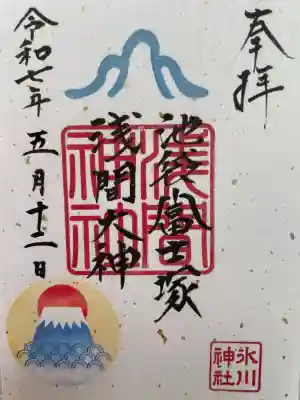 奉拝
池袋富士塚
浅間大神
浅間神社
令和七年五月十二日
氷川神社